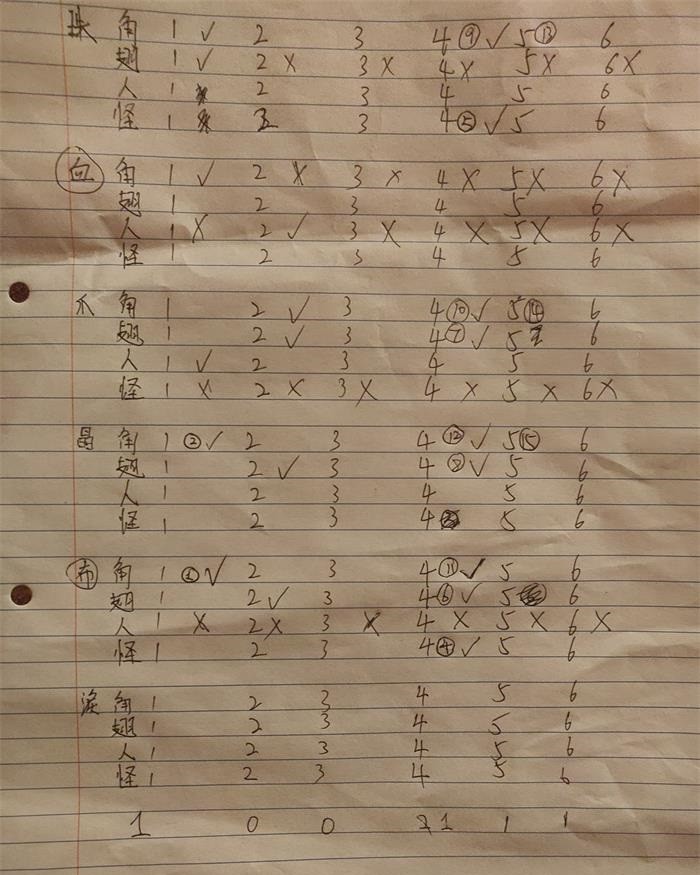 珠 角 1 ✓ 2 3 4 ⑨ ✓ 5 ⑬ 6
翅 1 ✓ 2 × 3 × 4 × 5 × 6 ×
人 1 2 3 4 5 6
怪 1 2 3 4 ⑤ ✓ 5 6
向 角 1 ✓ 2 × 3 × 4 × 5 × 6 ×
翅 1 2 3 4 5 6
人 1 × 2 ✓ 3 × 4 × 5 × 6 ×
怪 1 2 3 4 5 6
爪 角 1 2 ✓ 3 4 ⑩ ✓ 5 ⑭ 6
翅 1 2 ✓ 3 4 ⑦ ✓ 5 6
人 1 ✓ 2 3 4 5 6
怪 1 × 2 × 3 × 4 × 5 × 6 ×
晶 角 1 ② ✓ 2 3 4 ⑫ ✓ 5 ⑮ 6
翅 1 2 ✓ 3 4 ⑧ ✓ 5 6
人 1 2 3 4 5 6
怪 1 2 3 4 5 6
布 角 1 ① ✓ 2 3 4 ⑪ ✓ 5 6
翅 1 2 ✓ 3 4 ⑥ ✓ 5 6
人 1 × 2 × 3 × 4 × 5 × 6 ×
怪 1 2 3 4 ④ ✓ 5 6
泪 角 1 2 3 4 5 6
翅 1 2 3 4 5 6
人 1 2 3 4 5 6
怪 1 2 3 4 5 6
1 0 0 1 1 1